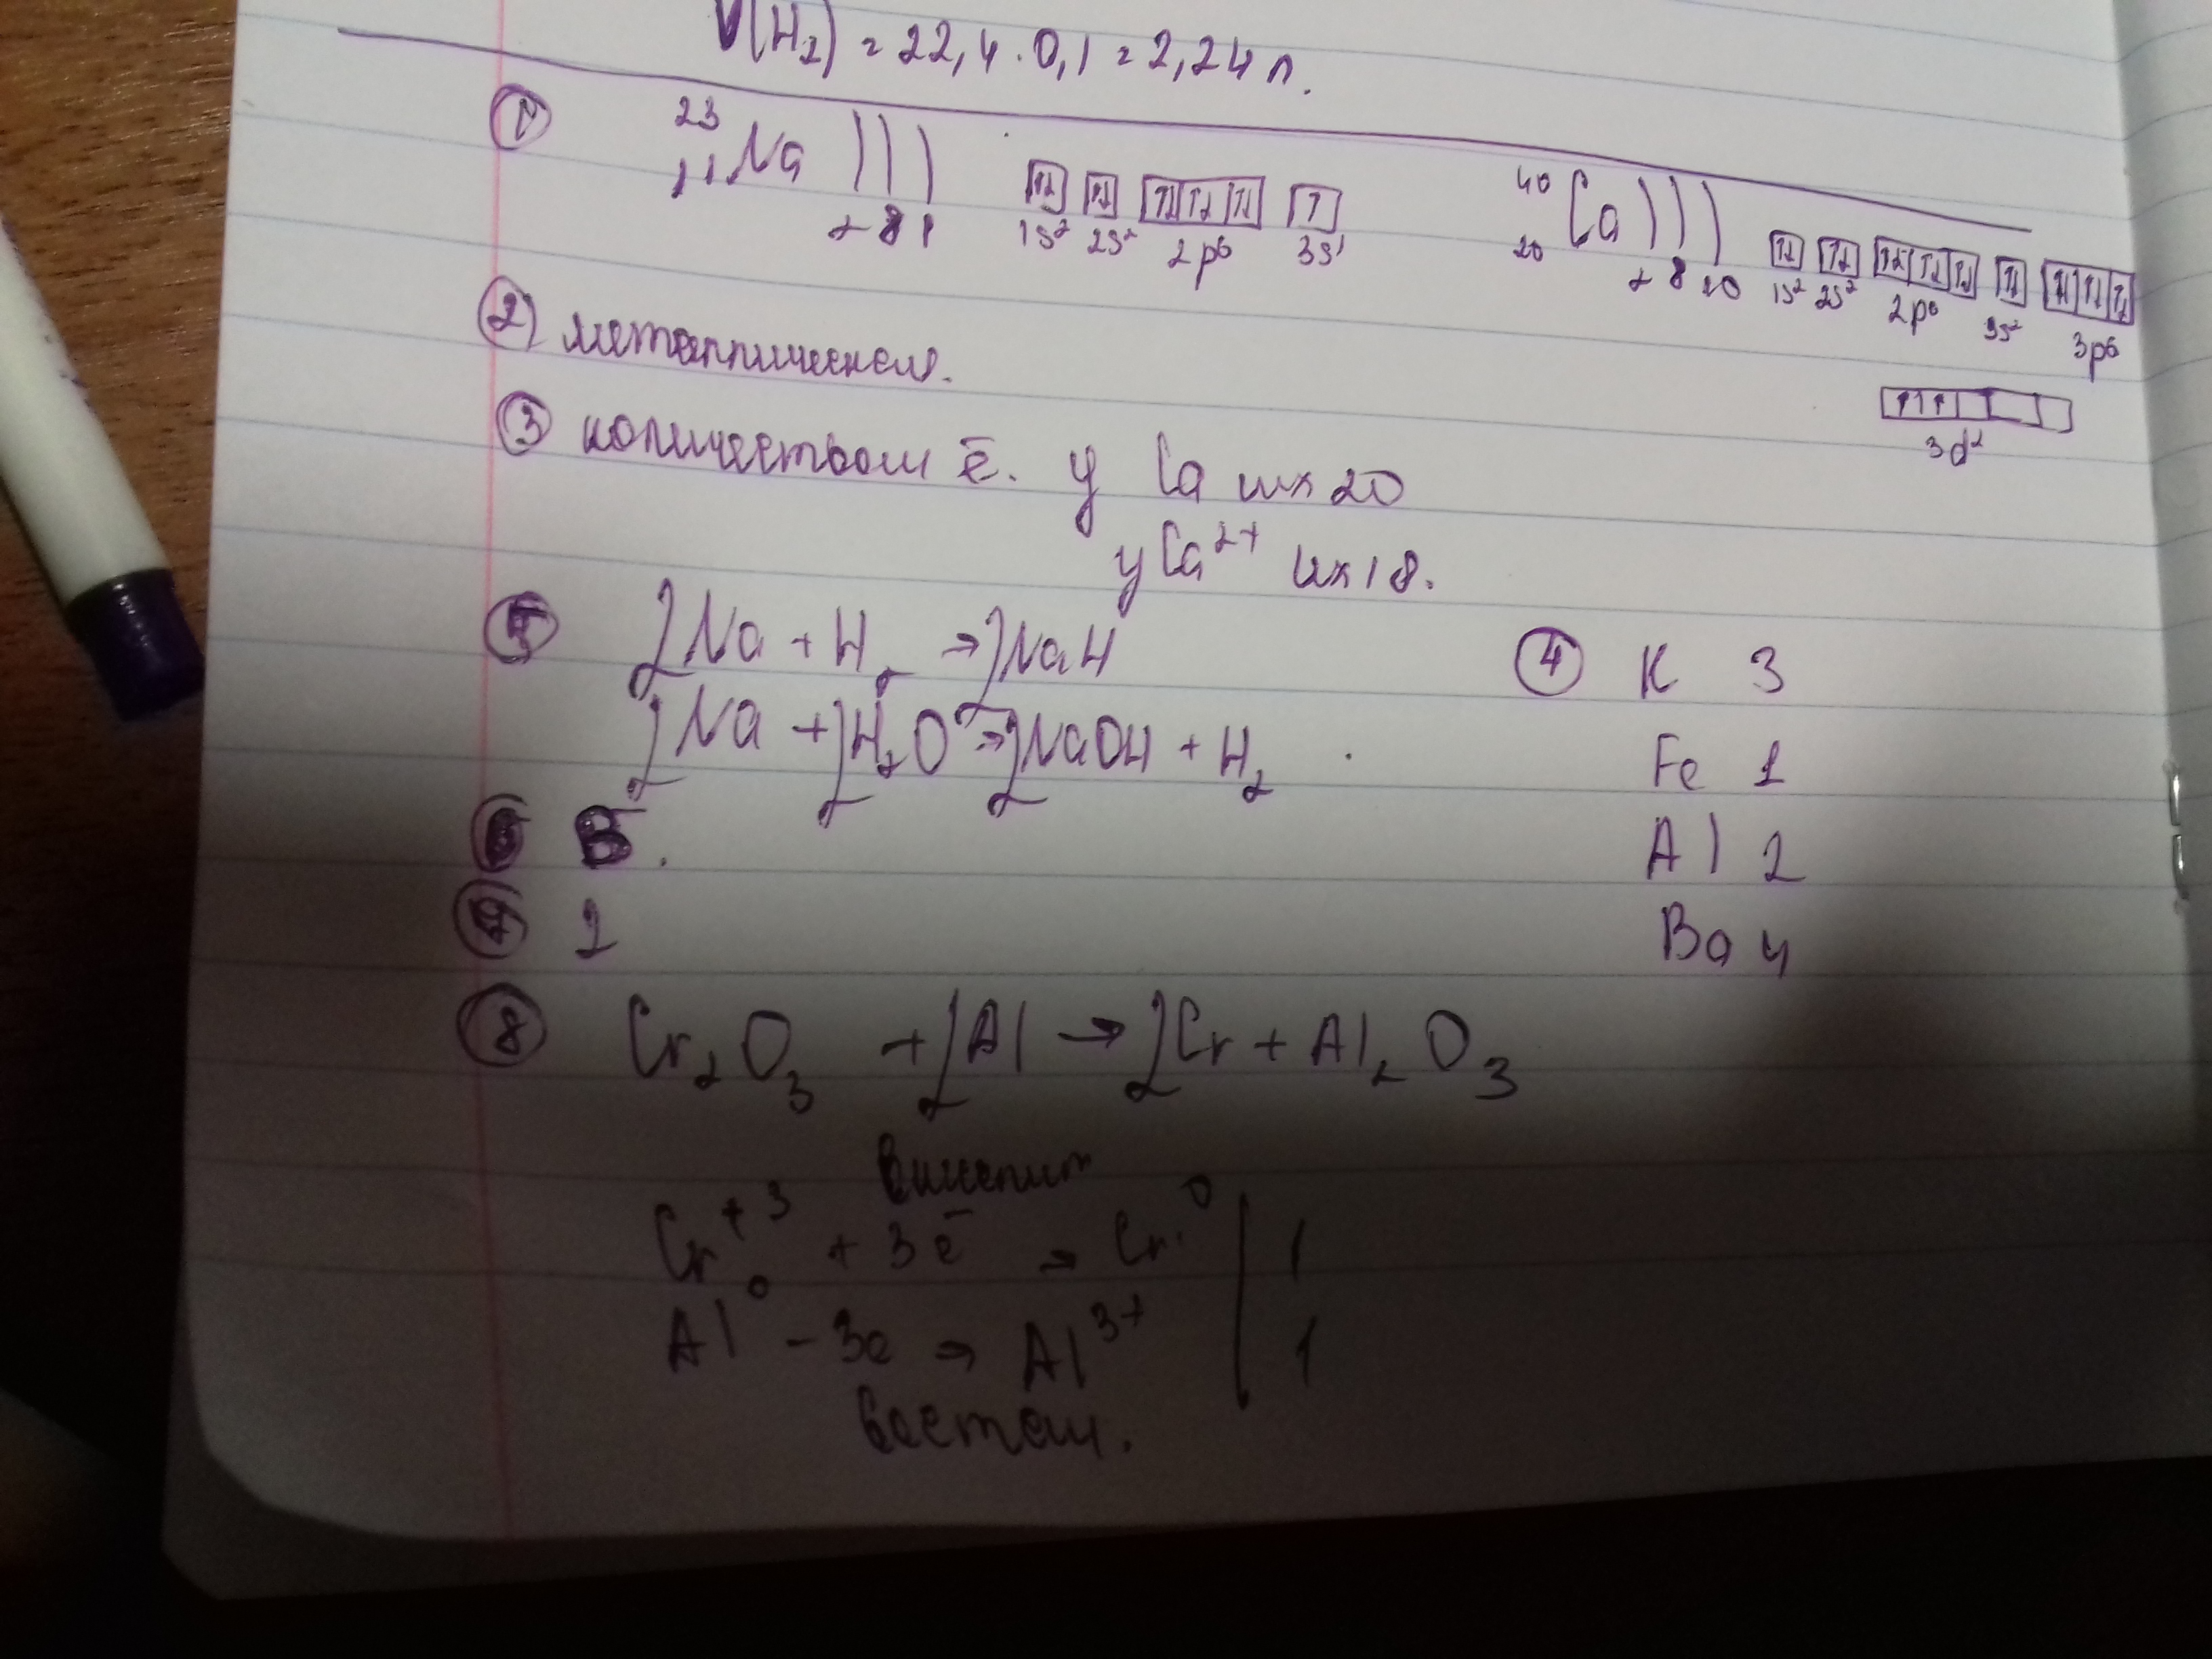 V(H₂) = 22,4 · 0,1 = 2,24 л.
① ²³₁₁Na ))) 2 8 1 1s² 2s² 2p⁶ 3s¹ ⁴⁰₂₀Ca ))) 2 8 10 1s² 2s² 2p⁶ 3s² 3p⁶
3d²
② металлическая.
③ количеством ē. у Ca их 20
у Ca²⁺ их 18.
⑤ 2Na + H₂ → 2NaH
2Na + 2H₂O → 2NaOH + H₂
④ K 3
Fe 1
Al 2
Ba 4
⑥ В.
⑦ 2
⑧ Cr₂O₃ + 2Al → 2Cr + Al₂O₃
Cr⁺³ + 3ē → Cr⁰ | 1
Al⁰ - 3e → Al³⁺ | 1
востан.